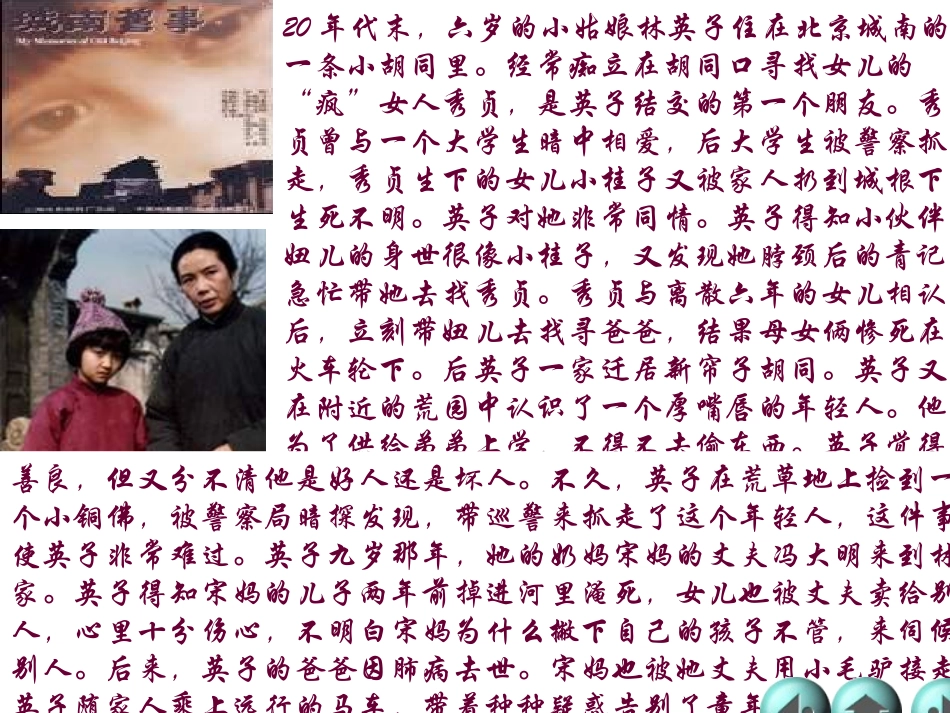 城南舊事
My Memories of Old Beijing
20 年代末，六岁的小姑娘林英子住在北京城南的
一条小胡同里。经常痴立在胡同口寻找女儿的
“疯”女人秀贞，是英子结交的第一个朋友。秀
贞曾与一个大学生暗中相爱，后大学生被警察抓
走，秀贞生下的女儿小桂子又被家人扔到城根下
生死不明。英子对她非常同情。英子得知小伙伴
妞儿的身世很像小桂子，又发现她脖颈后的青记
急忙带她去找秀贞。秀贞与离散六年的女儿相认
后，立刻带妞儿去找寻爸爸，结果母女俩惨死在
火车轮下。后英子一家迁居新帘子胡同。英子又
在附近的荒园中认识了一个厚嘴唇的年轻人。他
为了供给弟弟上学，不得不去偷东西。英子觉得
善良，但又分不清他是好人还是坏人。不久，英子在荒草地上捡到一
个小铜佛，被警察局暗探发现，带巡警来抓走了这个年轻人，这件事
使英子非常难过。英子九岁那年，她的奶妈宋妈的丈夫冯大明来到林
家。英子得知宋妈的儿子两年前掉进河里淹死，女儿也被丈夫卖给别
人，心里十分伤心，不明白宋妈为什么撇下自己的孩子不管，来伺候
别人。后来，英子的爸爸因肺病去世。宋妈也被她丈夫用小毛驴接走
英子随家人乘上远行的马车，带着种种疑惑告别了童年